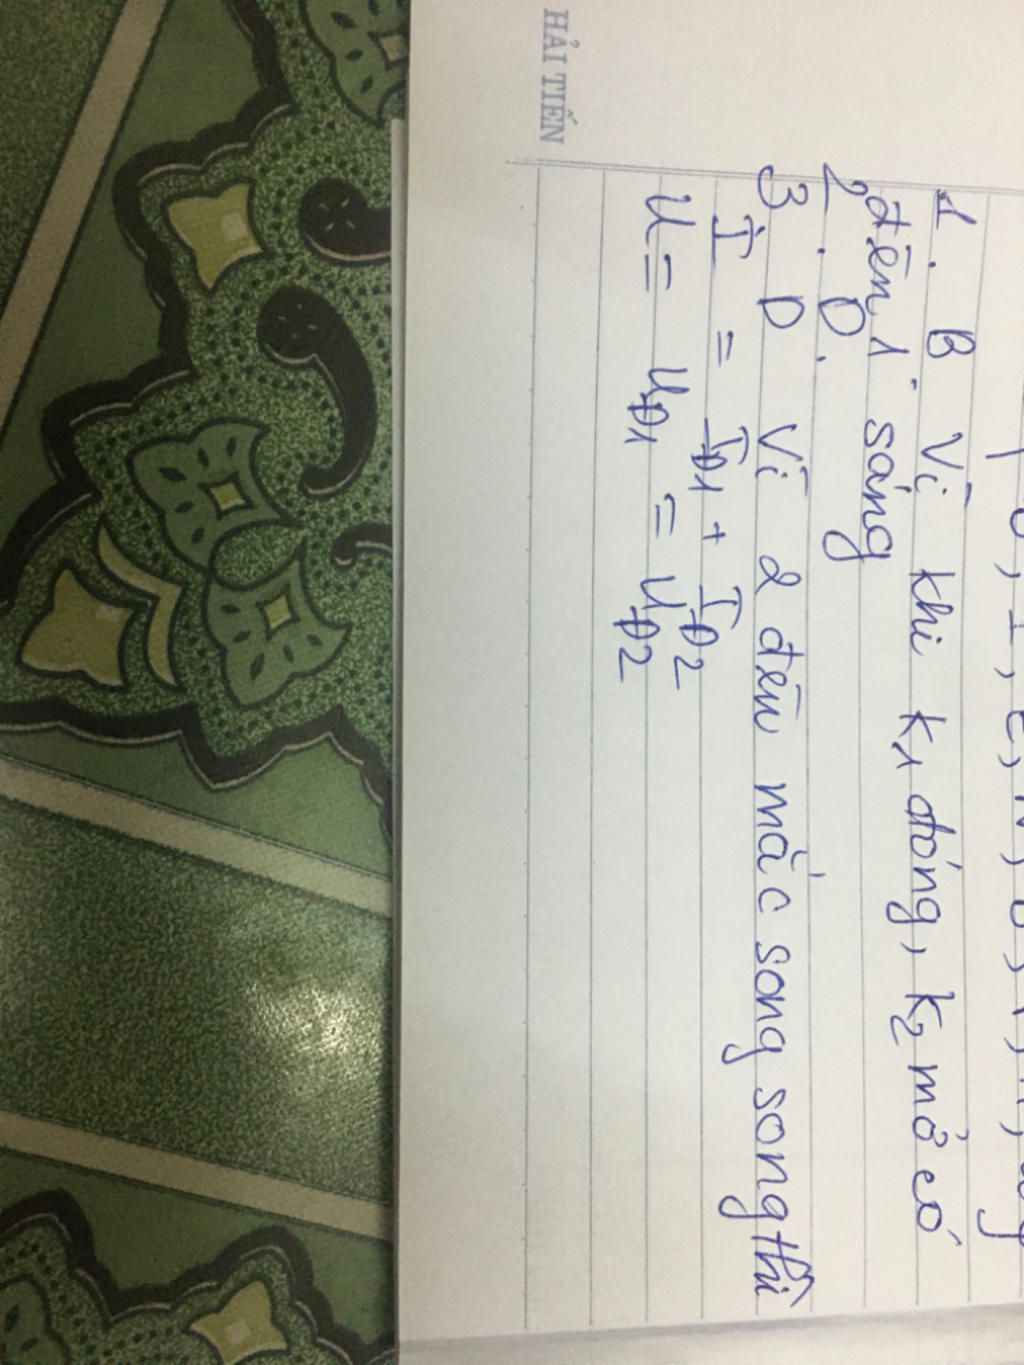 1. B Vì khi K1 đóng, K2 mở có
đèn 1 sáng
2. D.
3 D Vì 2 đèn mắc song song thì
I = IĐ1 + IĐ2
U = UĐ1 = UĐ2
HẢI TIẾN